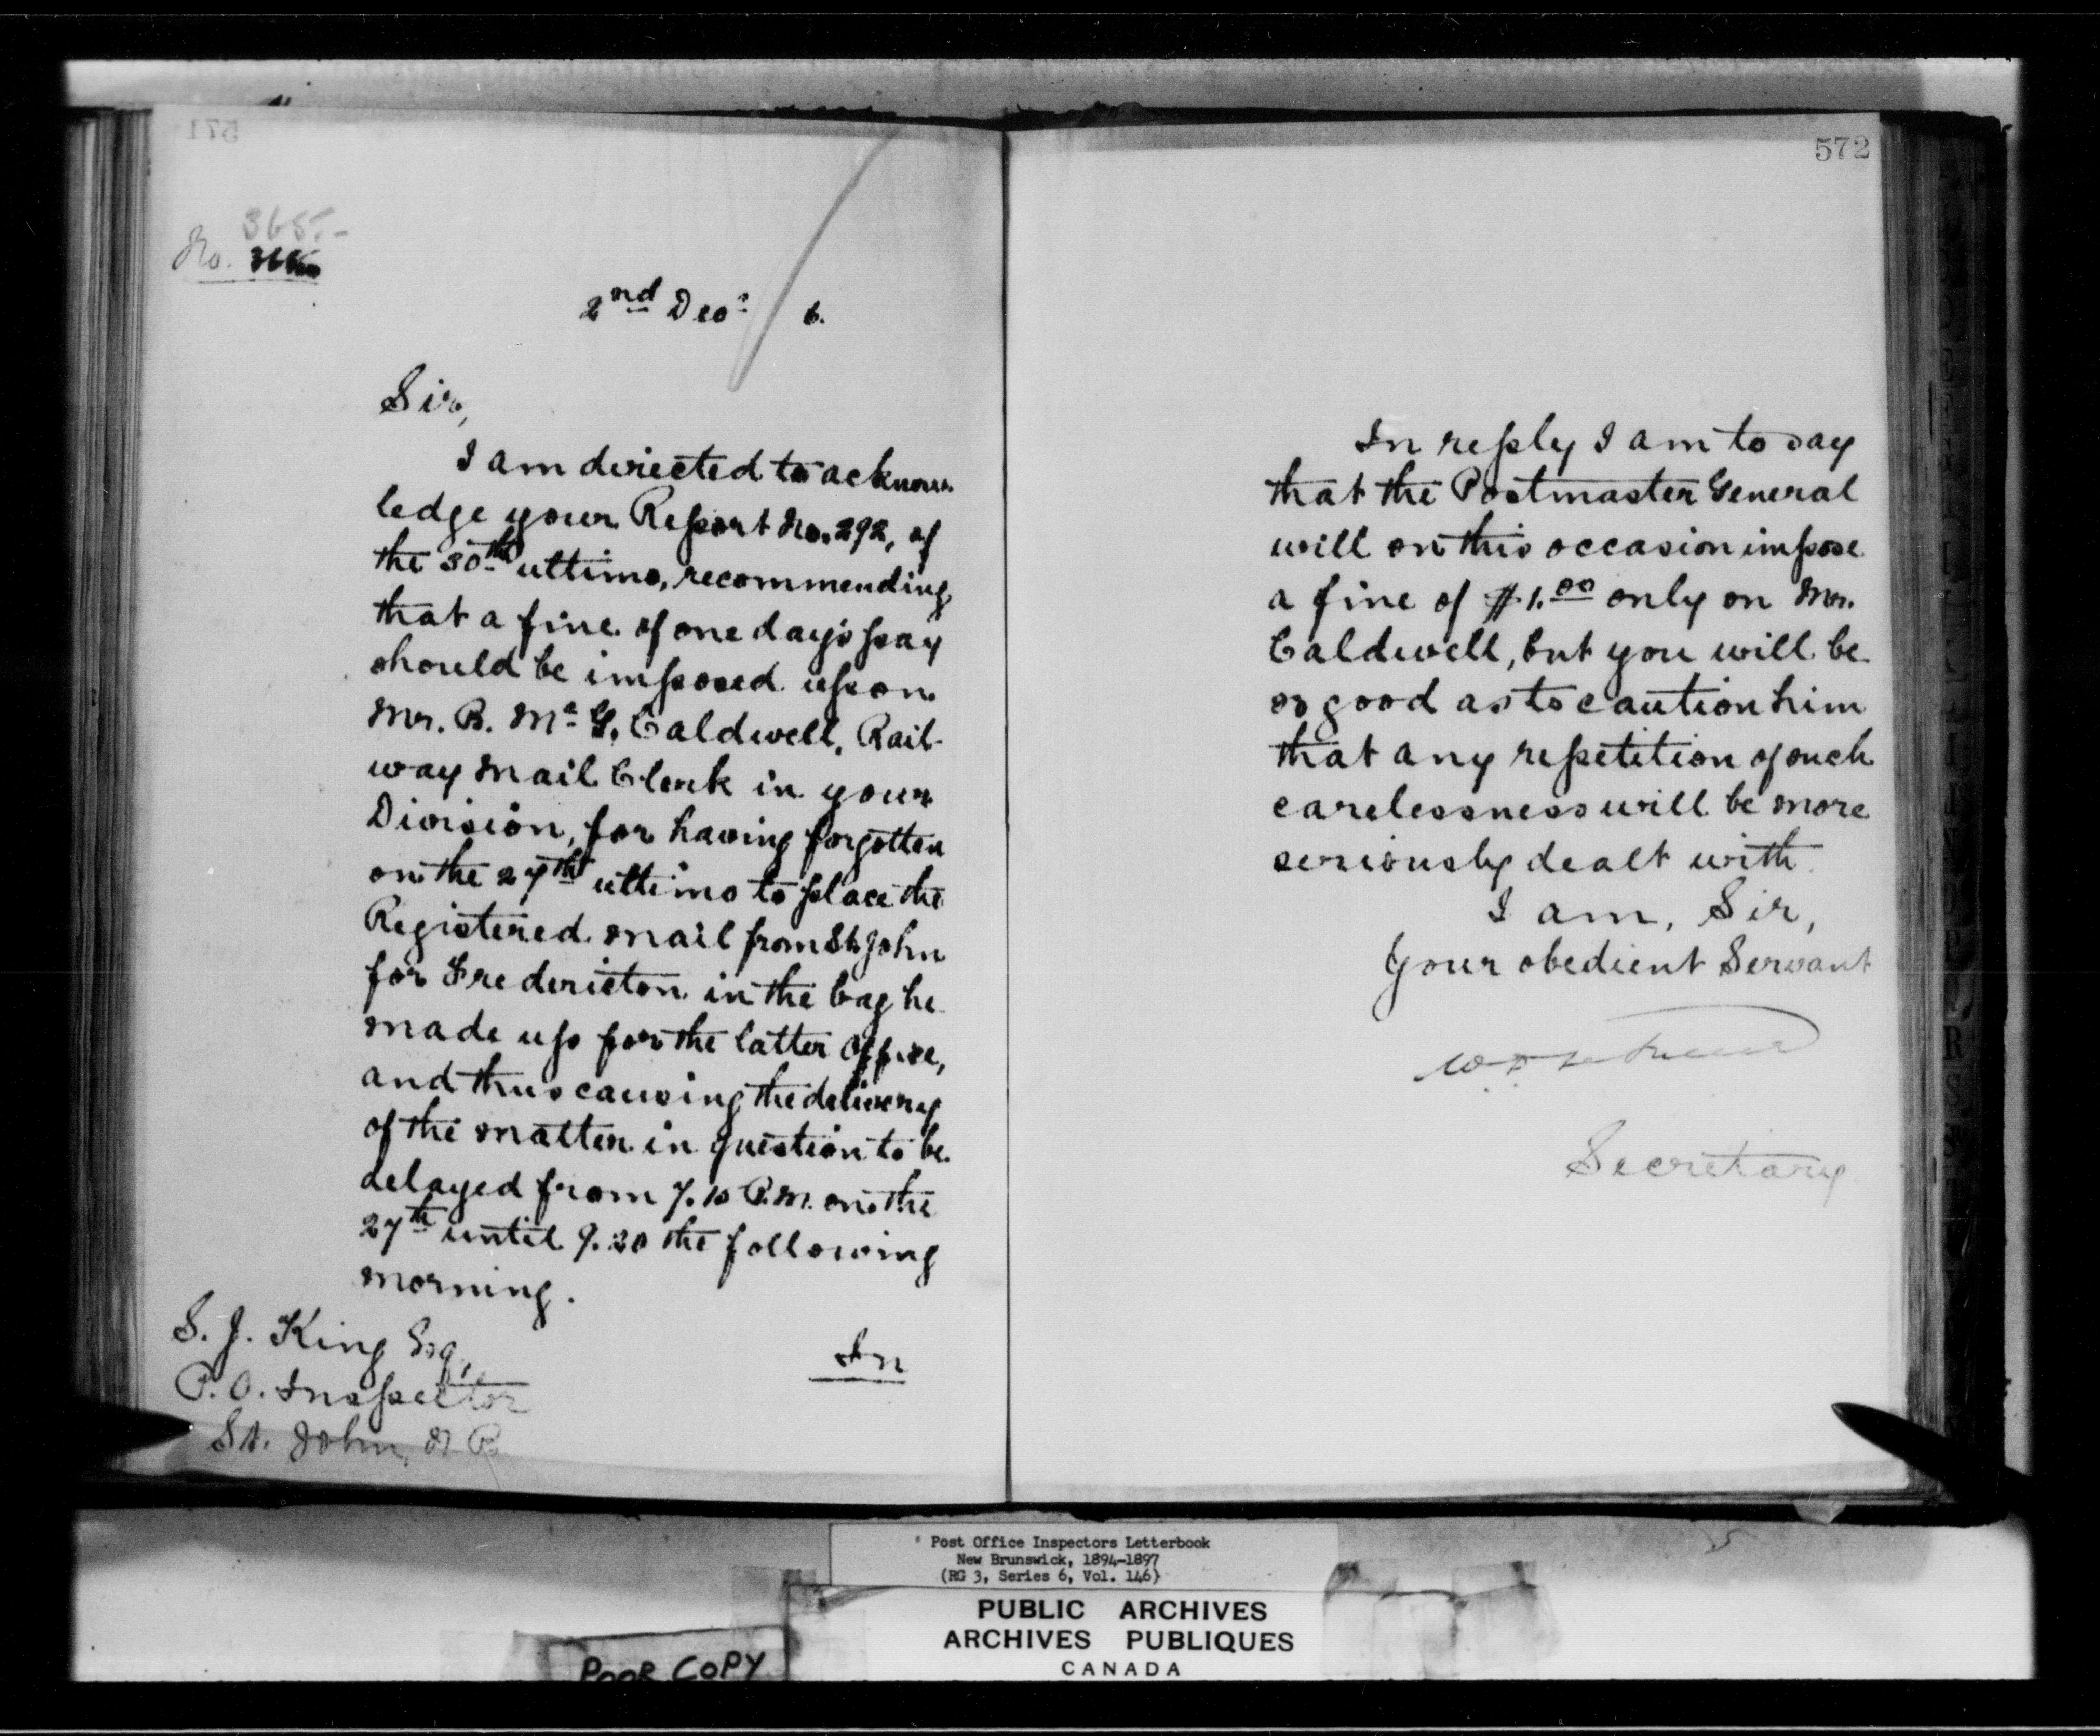 571
365.-
No.
2nd Decr 6.
Sir,
I am directed to acknow
ledge your Report No. 292, of
the 30th ultimo, recommending,
that a fine of one day's pay
should be imposed upon
Mr. B. Mc G. Caldwell, Rail-
way Mail Clerk in your
Division, for having forgotten
on the 27th ultimo to place the
Registered mail from St. John
for Fredericton in the bag he
made up for the latter Office,
and thus causing the delivery
of the matter in question to be
delayed from 7.10 P.M. on the
27th until 9.20 the following
morning.
In
S. J. King Esq,
P.O. Inspector
St. John, N B
572
In reply I am to say
that the Postmaster General
will on this occasion impose
a fine of $1.00 only on Mr.
Caldwell, but you will be
so good as to caution him
that any repetition of such
carelessness will be more
seriously dealt with.
I am, Sir,
Your obedient Servant
Secretary
Post Office Inspectors Letterbook
New Brunswick, 1894-1897
(RG 3, Series 6, Vol. 146)
PUBLIC ARCHIVES
ARCHIVES PUBLIQUES
CANADA
POOR COPY